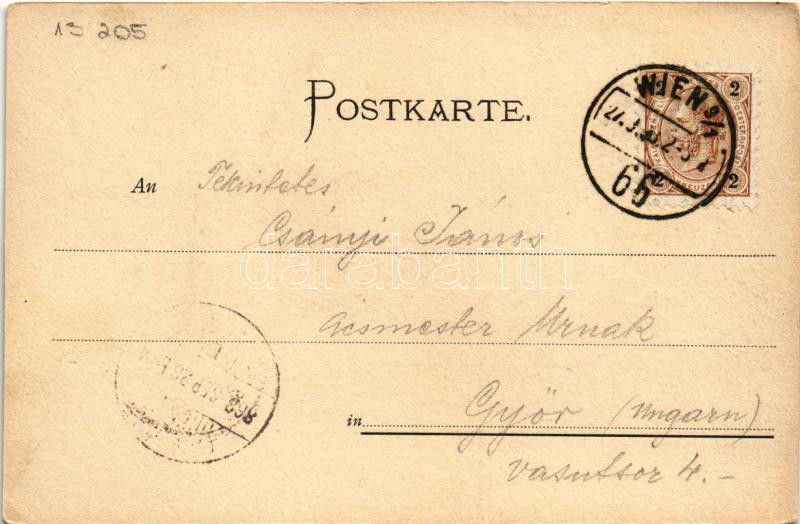 13 205
POSTKARTE.
WIEN 9/1
66
2 2
2 2
An Tekintetes
Csányi János
ácsmester Urnak
in Győr (Ungarn)
vasutsor 4.-
darabanth